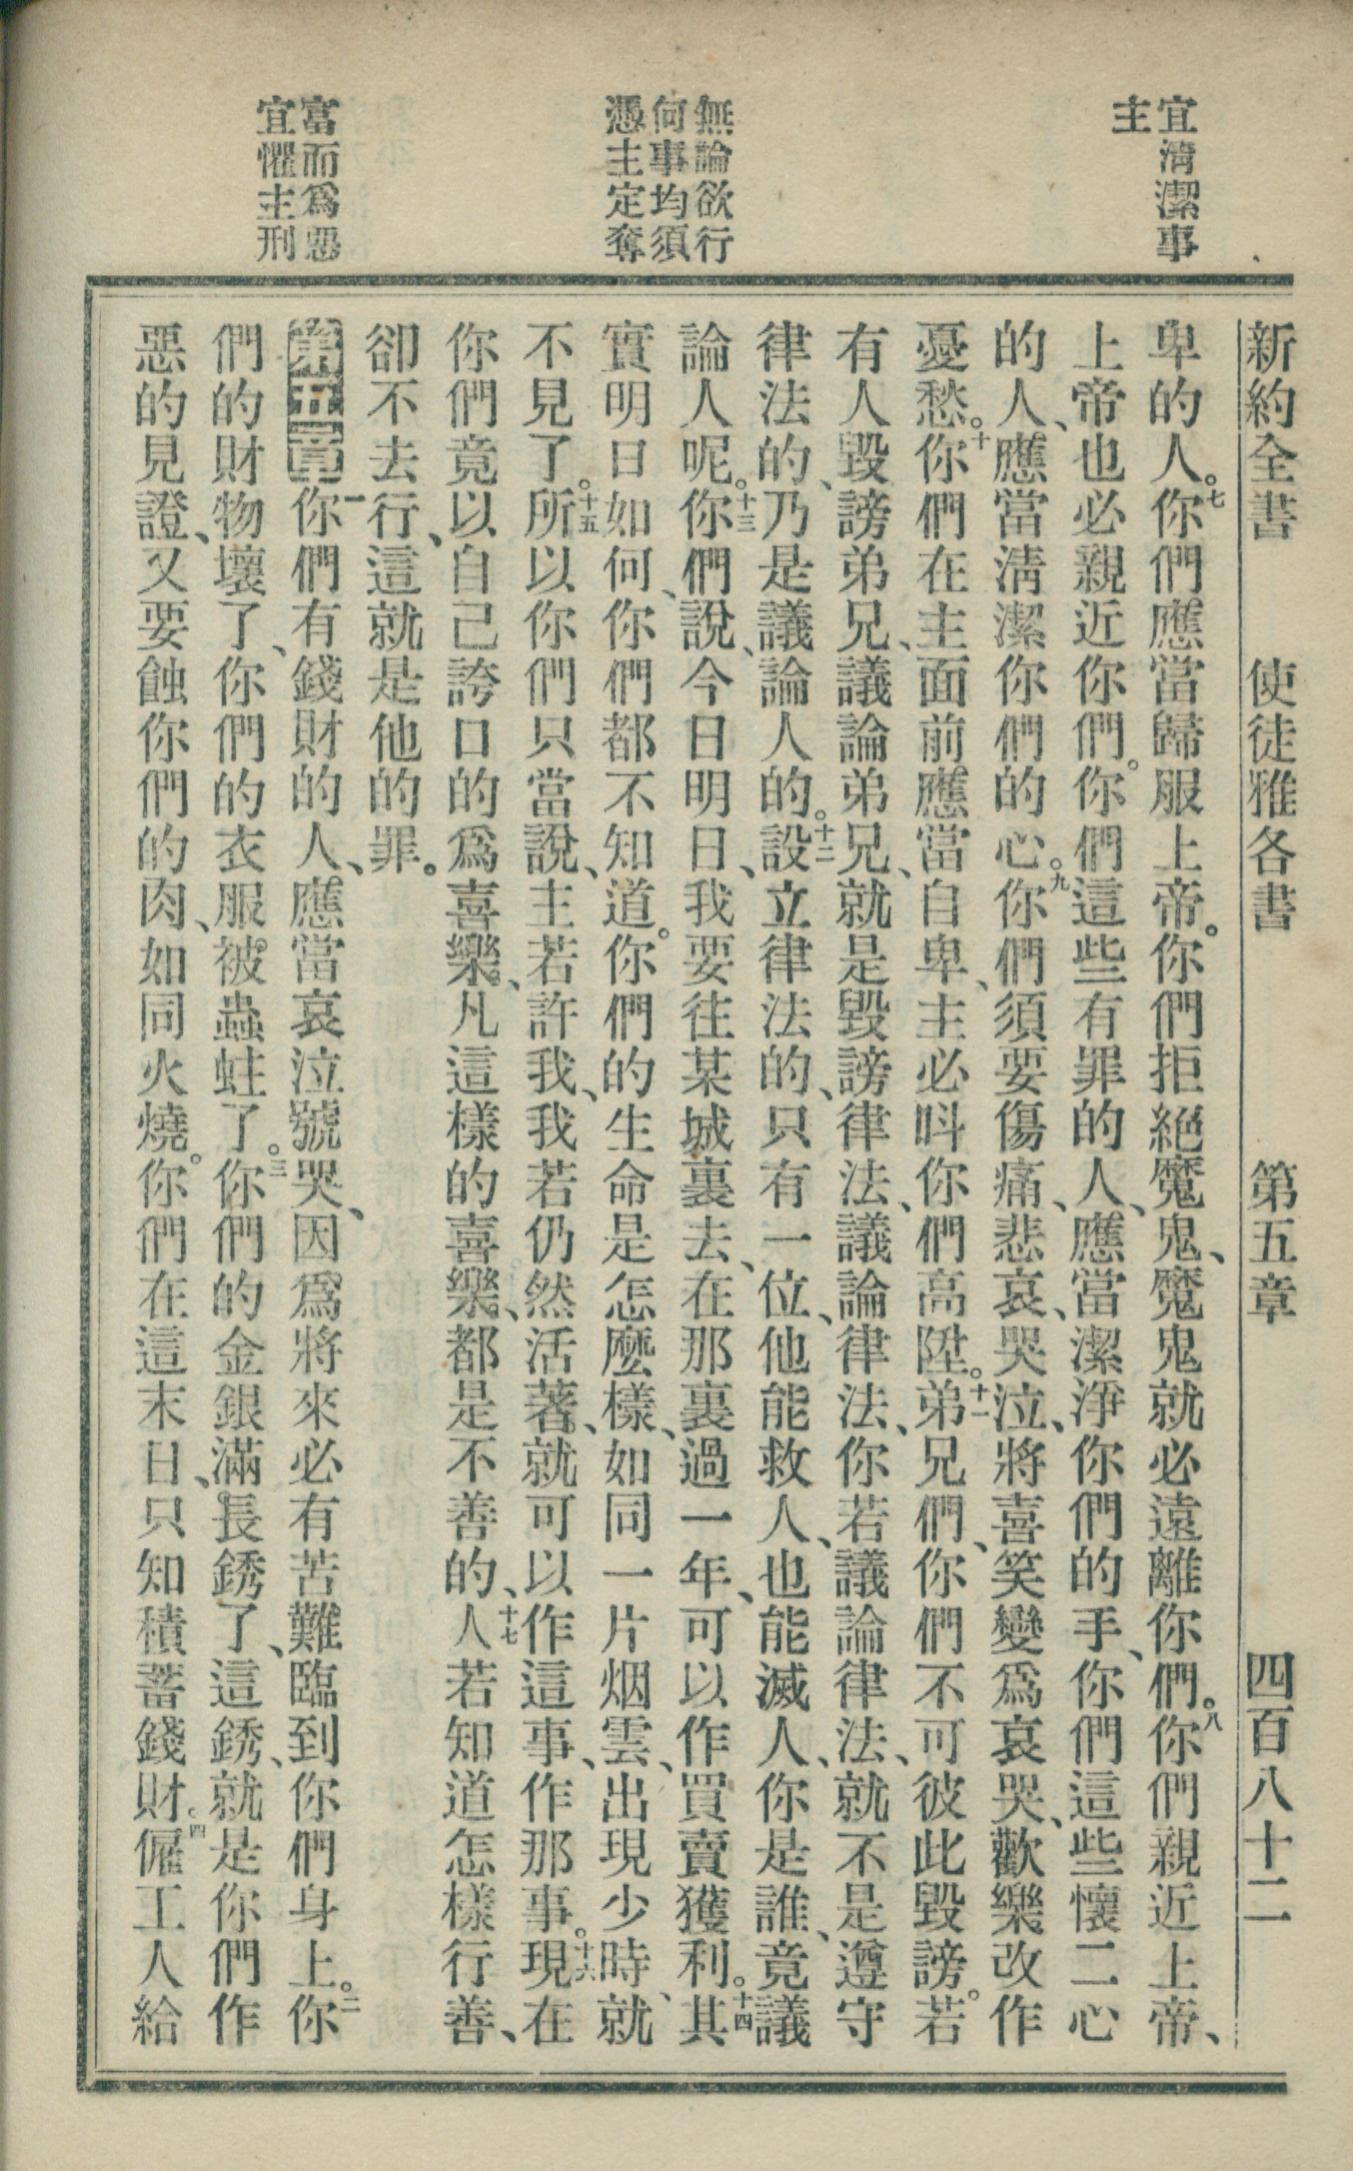 新約全書　使徒雅各書　第五章　四百八十二
宜清潔事
主
無論欲行
何事均須
憑主定奪
富而爲惡
宜懼主刑
卑的人。七你們應當歸服上帝。你們拒絕魔鬼、魔鬼就必遠離你們。八你們親近上帝、
上帝也必親近你們。你們這些有罪的人、應當潔淨你們的手、你們這些懷二心
的人、應當淸潔你們的心。九你們須要傷痛、悲哀、哭泣、將喜笑變爲哀哭、歡樂改作
憂愁。十你們在主面前應當自卑、主必呌你們高陞。十一弟兄們、你們不可彼此毀謗。若
有人毀謗弟兄、議論弟兄、就是毀謗律法、議論律法、你若議論律法、就不是遵守
律法的、乃是議論人的。十二設立律法的、只有一位、他能救人、也能滅人、你是誰、竟議
論人呢。十三你們說、今日明日、我要往某城裏去、在那裏過一年、可以作買賣獲利。十四其
實明日如何、你們都不知道。你們的生命是怎麼樣、如同一片烟雲、出現少時、就
不見了。十五所以你們只當說、主若許我、我若仍然活著、就可以作這事、作那事。十六現在
你們竟以自己誇口的爲喜樂、凡這樣的喜樂、都是不善的、十七人若知道怎樣行善、
卻不去行、這就是他的罪。
第五章一你們有錢財的人、應當哀泣號哭、因爲將來必有苦難臨到你們身上。二你
們的財物壞了、你們的衣服被蟲蛀了。三你們的金銀滿長銹了、這銹、就是你們作
惡的見證、又要蝕你們的肉、如同火燒。你們在這末日、只知積蓄錢財。四僱工人給